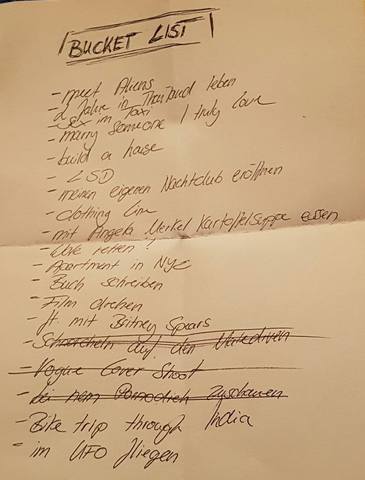 BUCKET LIST
- meet Aliens
- 2 Jahre in Thailand leben
- Sex im Taxi
- marry someone I truly love
- build a house
- LSD
- meinen eigenen Nachtclub eröffnen
- clothing line
- mit Angela Merkel Kartoffelsuppe essen
- retten!
- Apartment in NYC
- Buch schreiben
- Film drehen
- ft. mit Britney Spears
- Schnorcheln auf den Malediven
- Vogue Cover Shoot
- bei nem Pornodreh zuschauen
- Bike trip through India
- im UFO fliegen